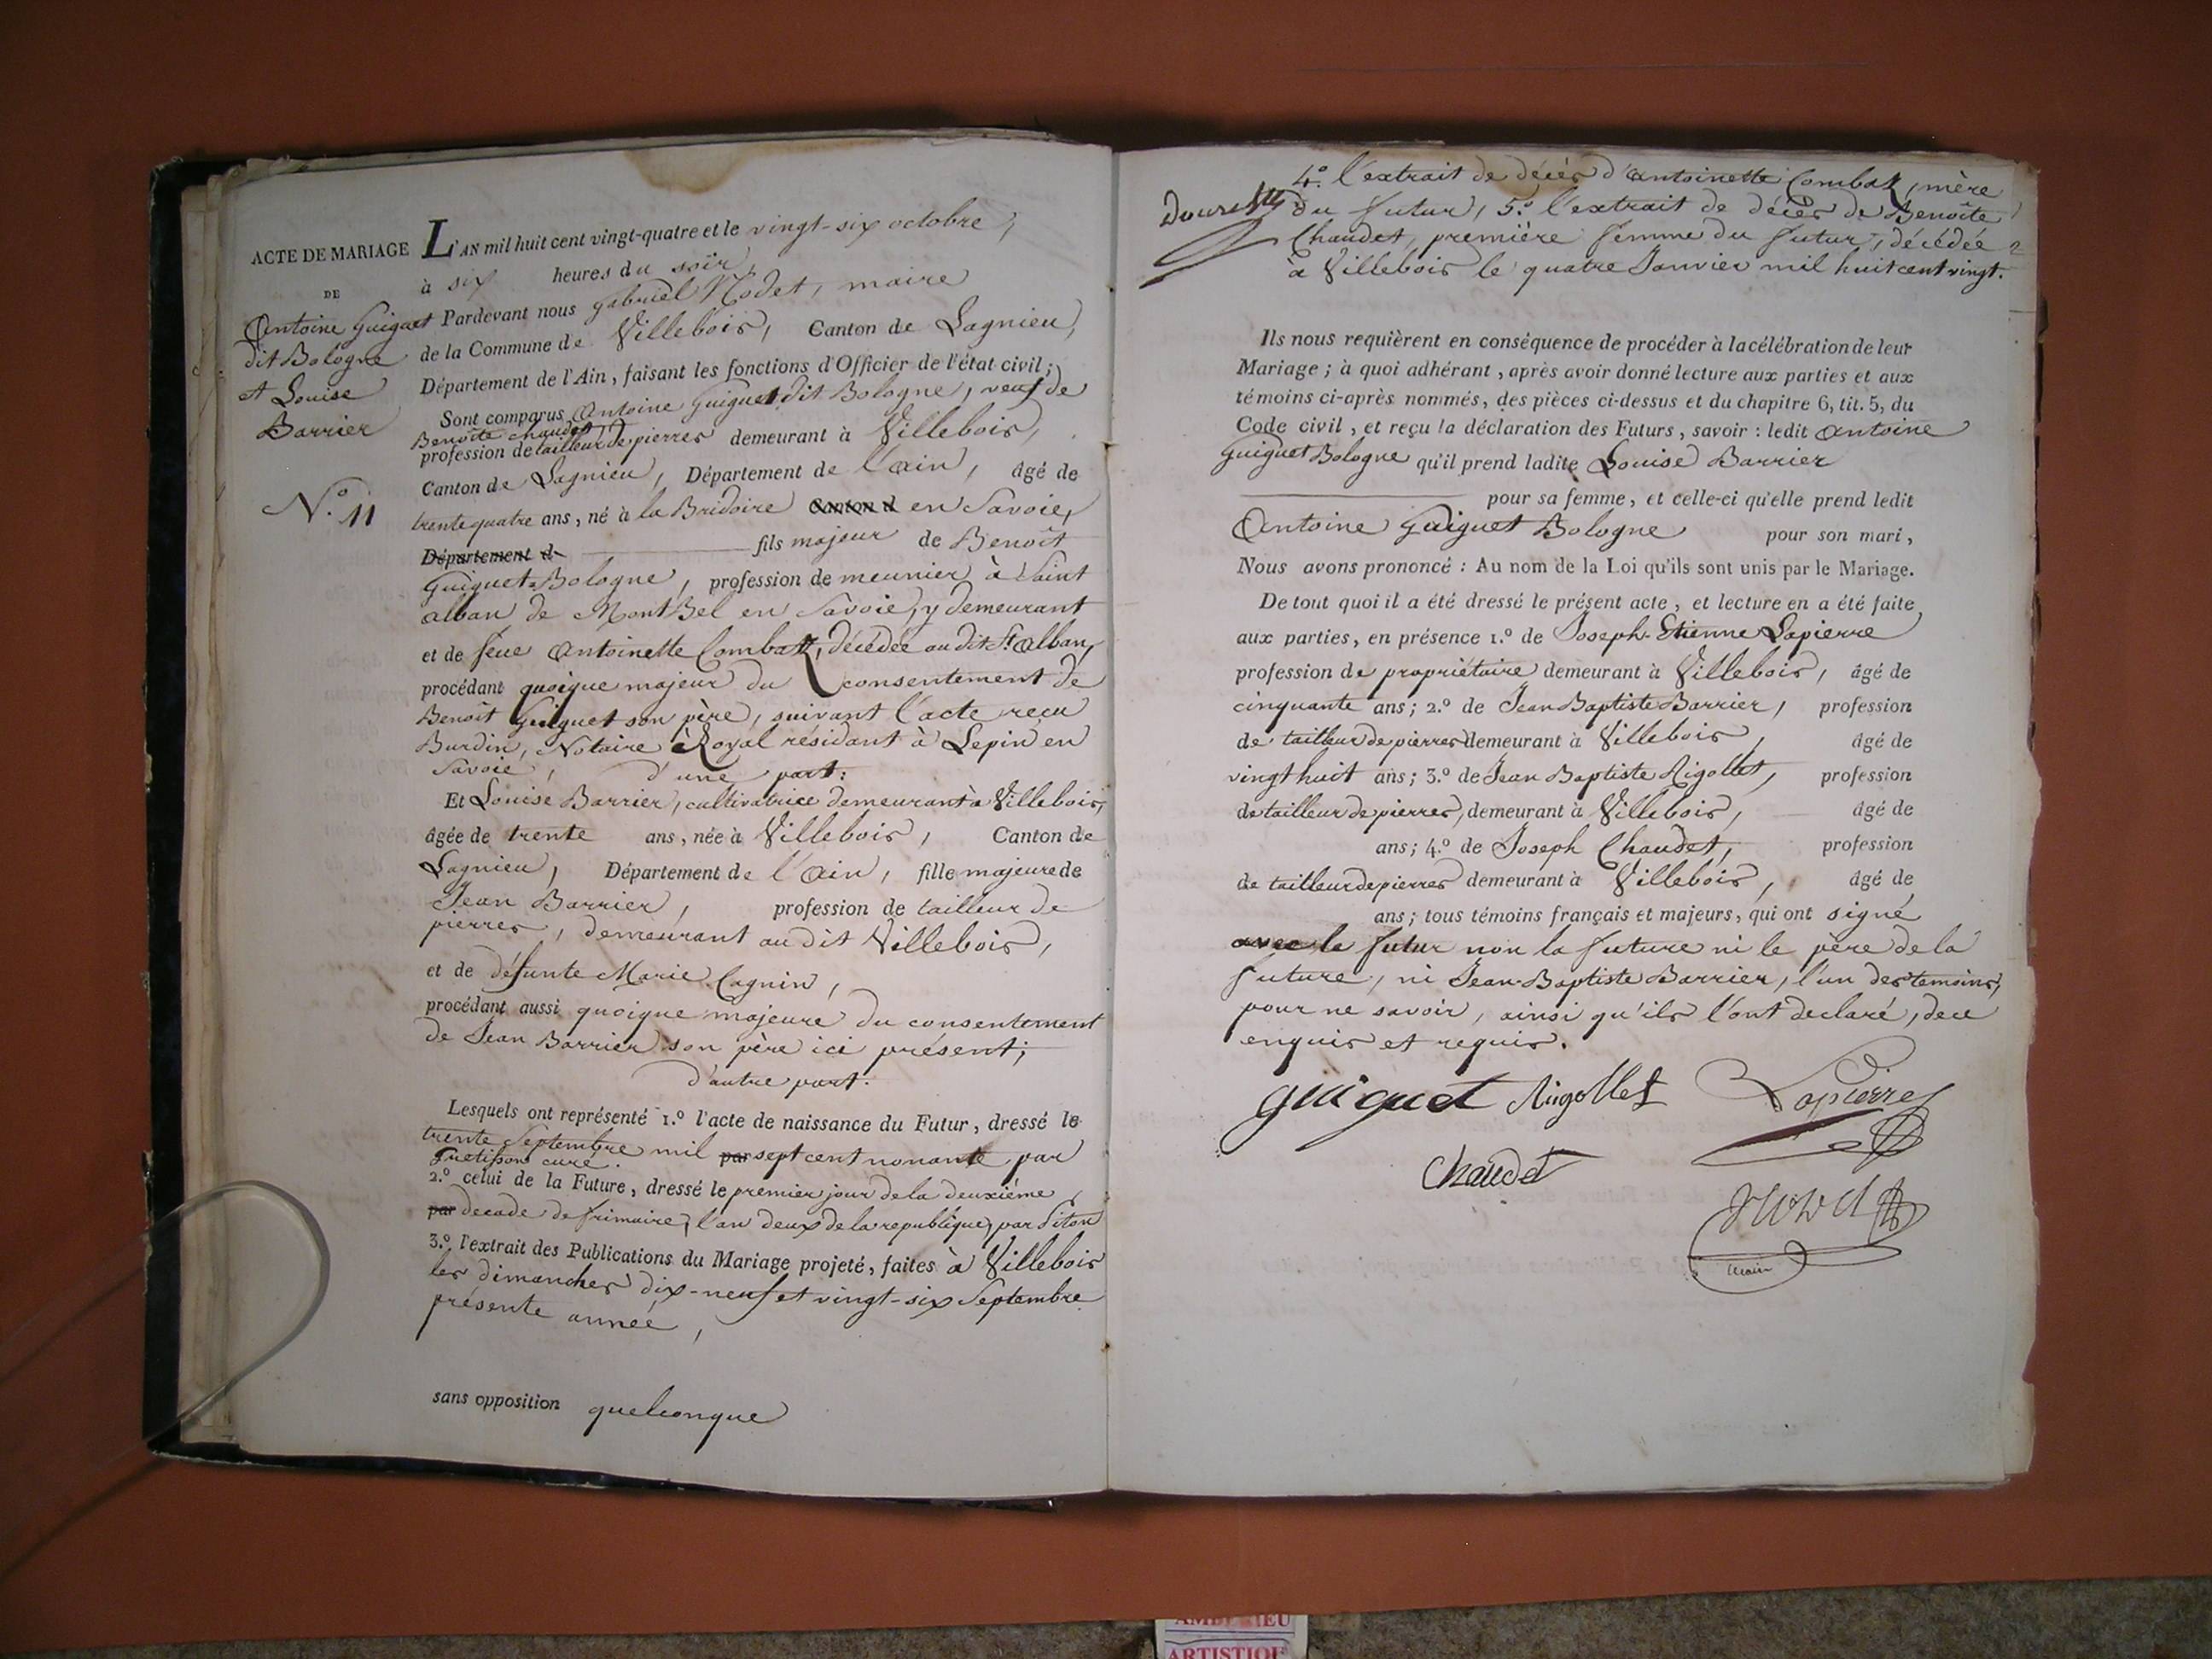 ACTE DE MARIAGE
DE
Antoine Guiguet
dit Bologne
et Louise
Barrier
N.º 11
L'AN mil huit cent vingt-quatre et le vingt-six octobre,
à six heures du soir,
Pardevant nous gabriel Nodet, maire
de la Commune de Villebois, Canton de Lagnieu,
Département de l'Ain, faisant les fonctions d'Officier de l'état civil;
Sont comparus Antoine Guiguet dit Bologne, veuf de
Benoîte chaudet,
profession de tailleur de pierres demeurant à Villebois,
Canton de Lagnieu, Département de l'ain, âgé de
trente quatre ans, né à la Bridoire Canton d en Savoie,
Département d fils majeur de Benoît
Guiguet-Bologne, profession de meunier à Saint
alban de MontBel en Savoie, y demeurant
et de feue Antoinette Combaz, décédée au dit St alban,
procédant quoique majeur du consentement de
Benoît Guiguet son père, suivant l'acte reçu
Burdin, Notaire Royal résidant à Lepin en
Savoie, d'une part:
Et Louise Barrier, cultivatrice demeurant à Villebois,
âgée de trente ans, née à Villebois, Canton de
Lagnieu, Département de l'Ain, fille majeure de
Jean Barrier, profession de tailleur de
pierres, demeurant au dit Villebois,
et de défunte Marie Cagnin,
procédant aussi quoique majeure du consentement
de Jean Barrier son père ici présent;
d'autre part.
Lesquels ont représenté 1.º l'acte de naissance du Futur, dressé le
trente Septembre mil par sept cent nonante par
curé.
2.º celui de la Future, dressé le premier jour de la deuxième
par decade de frimaire, l'an deux de la republique, par Siton
3.º l'extrait des Publications du Mariage projeté, faites à Villebois
les dimanches dix-neuf et vingt-six Septembre
présente année,
sans opposition quelconque
4.º l'extrait de décès d'antoinette Combaz, mère
du futur, 5.º l'extrait de décès de Benoîte
Chaudet, première femme du futur, décédée
à Villebois le quatre Janvier mil huit cent vingt.
Ils nous requièrent en conséquence de procéder à la célébration de leur
Mariage; à quoi adhérant, après avoir donné lecture aux parties et aux
témoins ci-après nommés, des pièces ci-dessus et du chapitre 6, tit. 5, du
Code civil, et reçu la déclaration des Futurs, savoir: ledit Antoine
Guiguet Bologne qu'il prend ladite Louise Barrier
pour sa femme, et celle-ci qu'elle prend ledit
Antoine Guiguet Bologne pour son mari,
Nous avons prononcé: Au nom de la Loi qu'ils sont unis par le Mariage.
De tout quoi il a été dressé le présent acte, et lecture en a été faite
aux parties, en présence 1.º de Joseph-Etienne Lapierre
profession de propriétaire demeurant à Villebois, âgé de
cinquante ans; 2.º de Jean Baptiste Barrier, profession
de tailleur de pierres demeurant à Villebois, âgé de
vingt huit ans; 3.º de Jean Baptiste Rigollet, profession
de tailleur de pierres, demeurant à Villebois, âgé de
ans; 4.º de Joseph Chaudet, profession
de tailleur de pierres demeurant à Villebois, âgé de
ans; tous témoins français et majeurs, qui ont signé
avec le futur non la future ni le père de la
future, ni Jean-Baptiste Barrier, l'un des temoins,
pour ne savoir, ainsi qu'ils l'ont declaré, de ce
enquis et requis.
guiguet Rigollet Lapierre
Chaudet
Nodet
maire
ARTISTIQUE